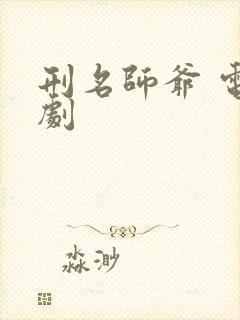 刑名師爺 電
劇
淼渺